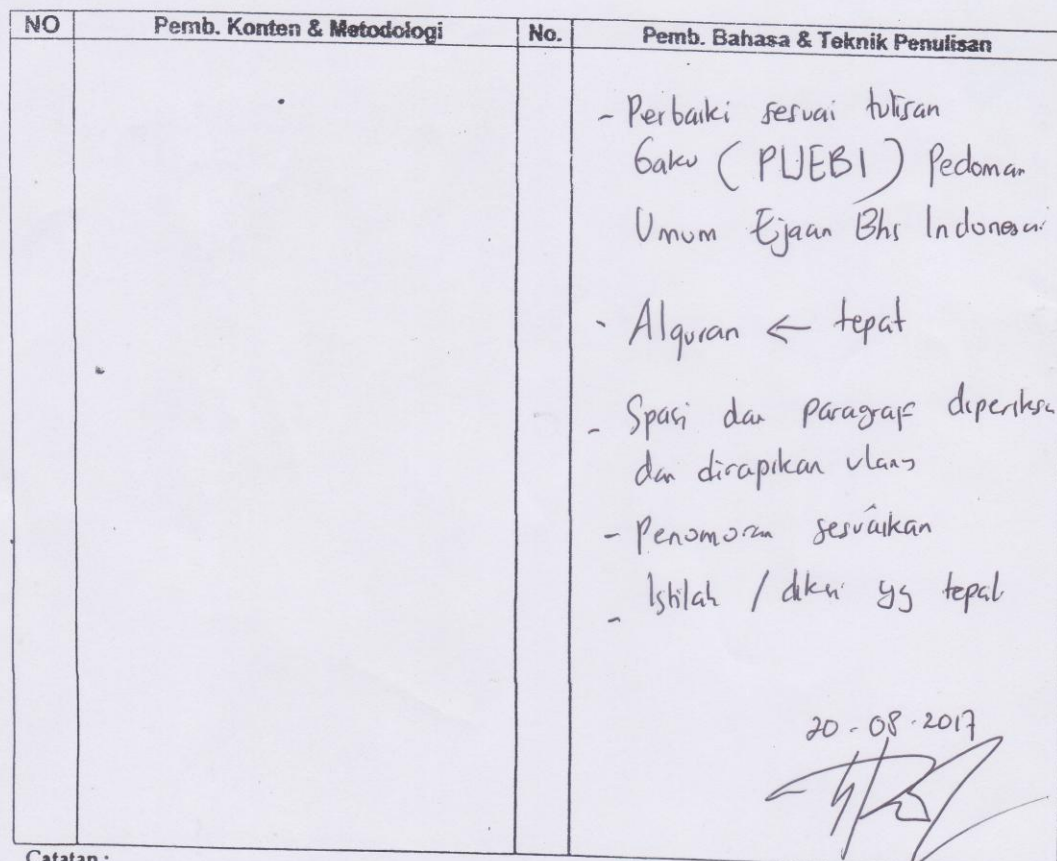 NO
Pemb. Konten & Metodologi
No.
Pemb. Bahasa & Teknik Penulisan
- Perbaiki sesuai tulisan
baku ( PUEBI ) Pedoman
Umum Ejaan Bhs Indonesai
- Alquran ← tepat
- Spasi dan Paragraf diperiksa
dan dirapikan ulang
- Penomoran sesuaikan
- Istilah / diksi yg tepat
20-08-2017
Catatan :